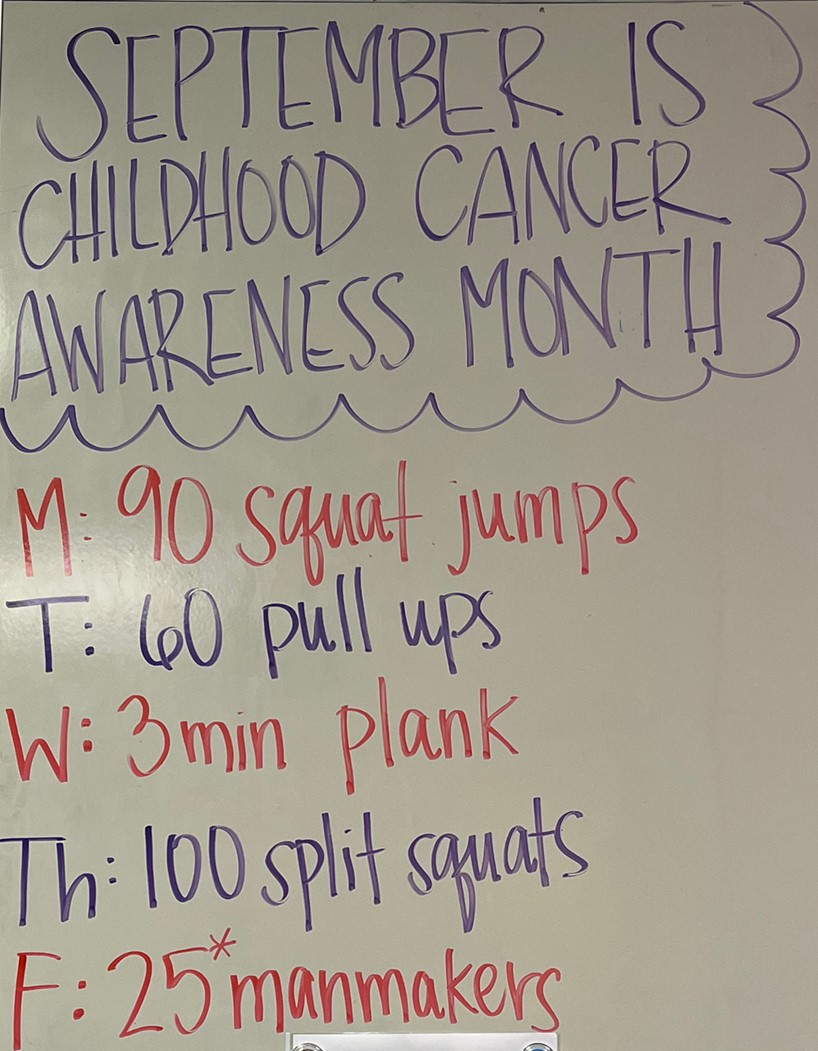 SEPTEMBER IS
CHILDHOOD CANCER
AWARENESS MONTH
M: 90 squat jumps
T: 60 pull ups
W: 3 min plank
Th: 100 split squats
F: 25* manmakers